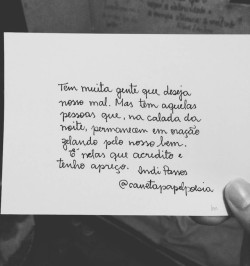 Tem muita gente que deseja
nosso mal. Mas tem aquelas
pessoas que, na calada da
noite, permanecem em oração
zelando pelo nosso bem.
É nelas que acredito e
tenho apreço.
@canetapapelpoesia